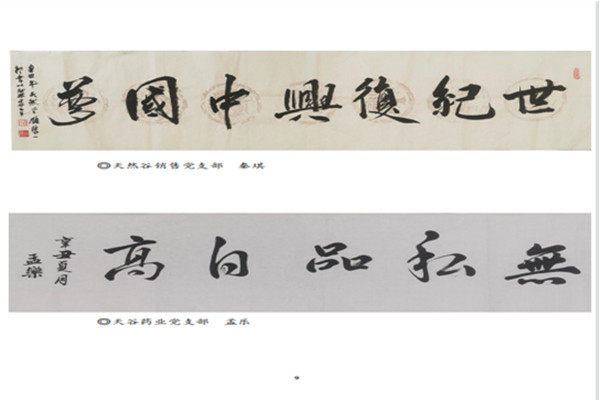 世紀復興中國夢
◎天然谷销售党支部 秦琪
無私品自高
辛丑夏月
孟樂
◎天谷药业党支部 孟乐
9